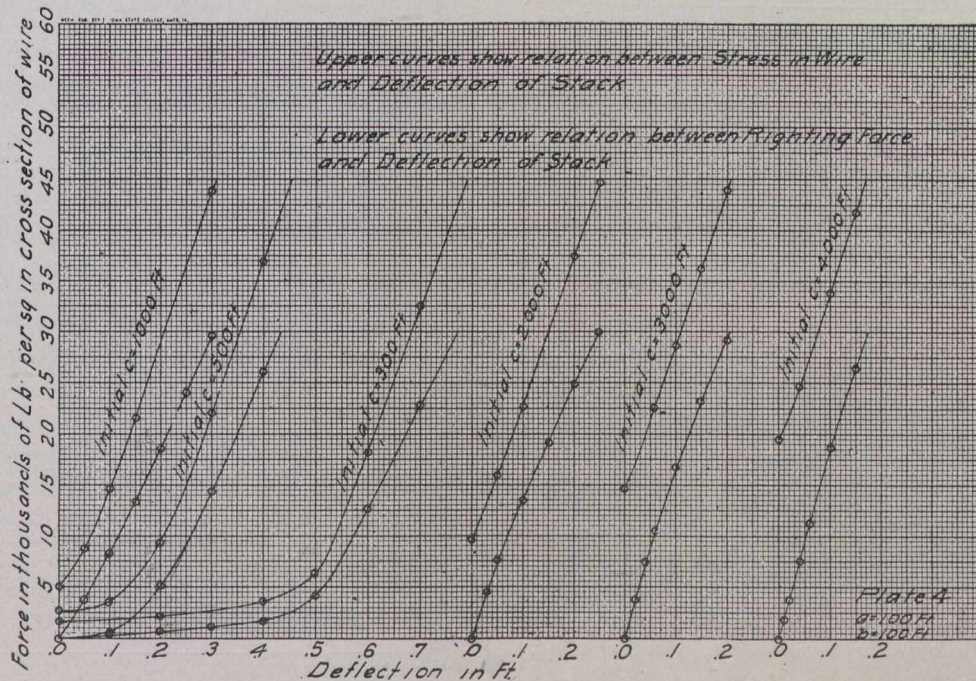 60
55
50
45
40
35
30
25
20
15
10
5
Force in thousands of Lb. per sq in cross section of wire
Upper curves show relation between Stress in Wire
and Deflection of Stack
Lower curves show relation between Righting Force
and Deflection of Stack
Initial c=1000 Ft
Initial c=500 Ft
Initial c=300 Ft
Initial c=2000 Ft
Initial c=3000 Ft
Initial c=4000 Ft
Plate 4
a=100 Ft
b=100 Ft
.0 .1 .2 .3 .4 .5 .6 .7 .0 .1 .2 .0 .1 .2 .0 .1 .2
Deflection in Ft.